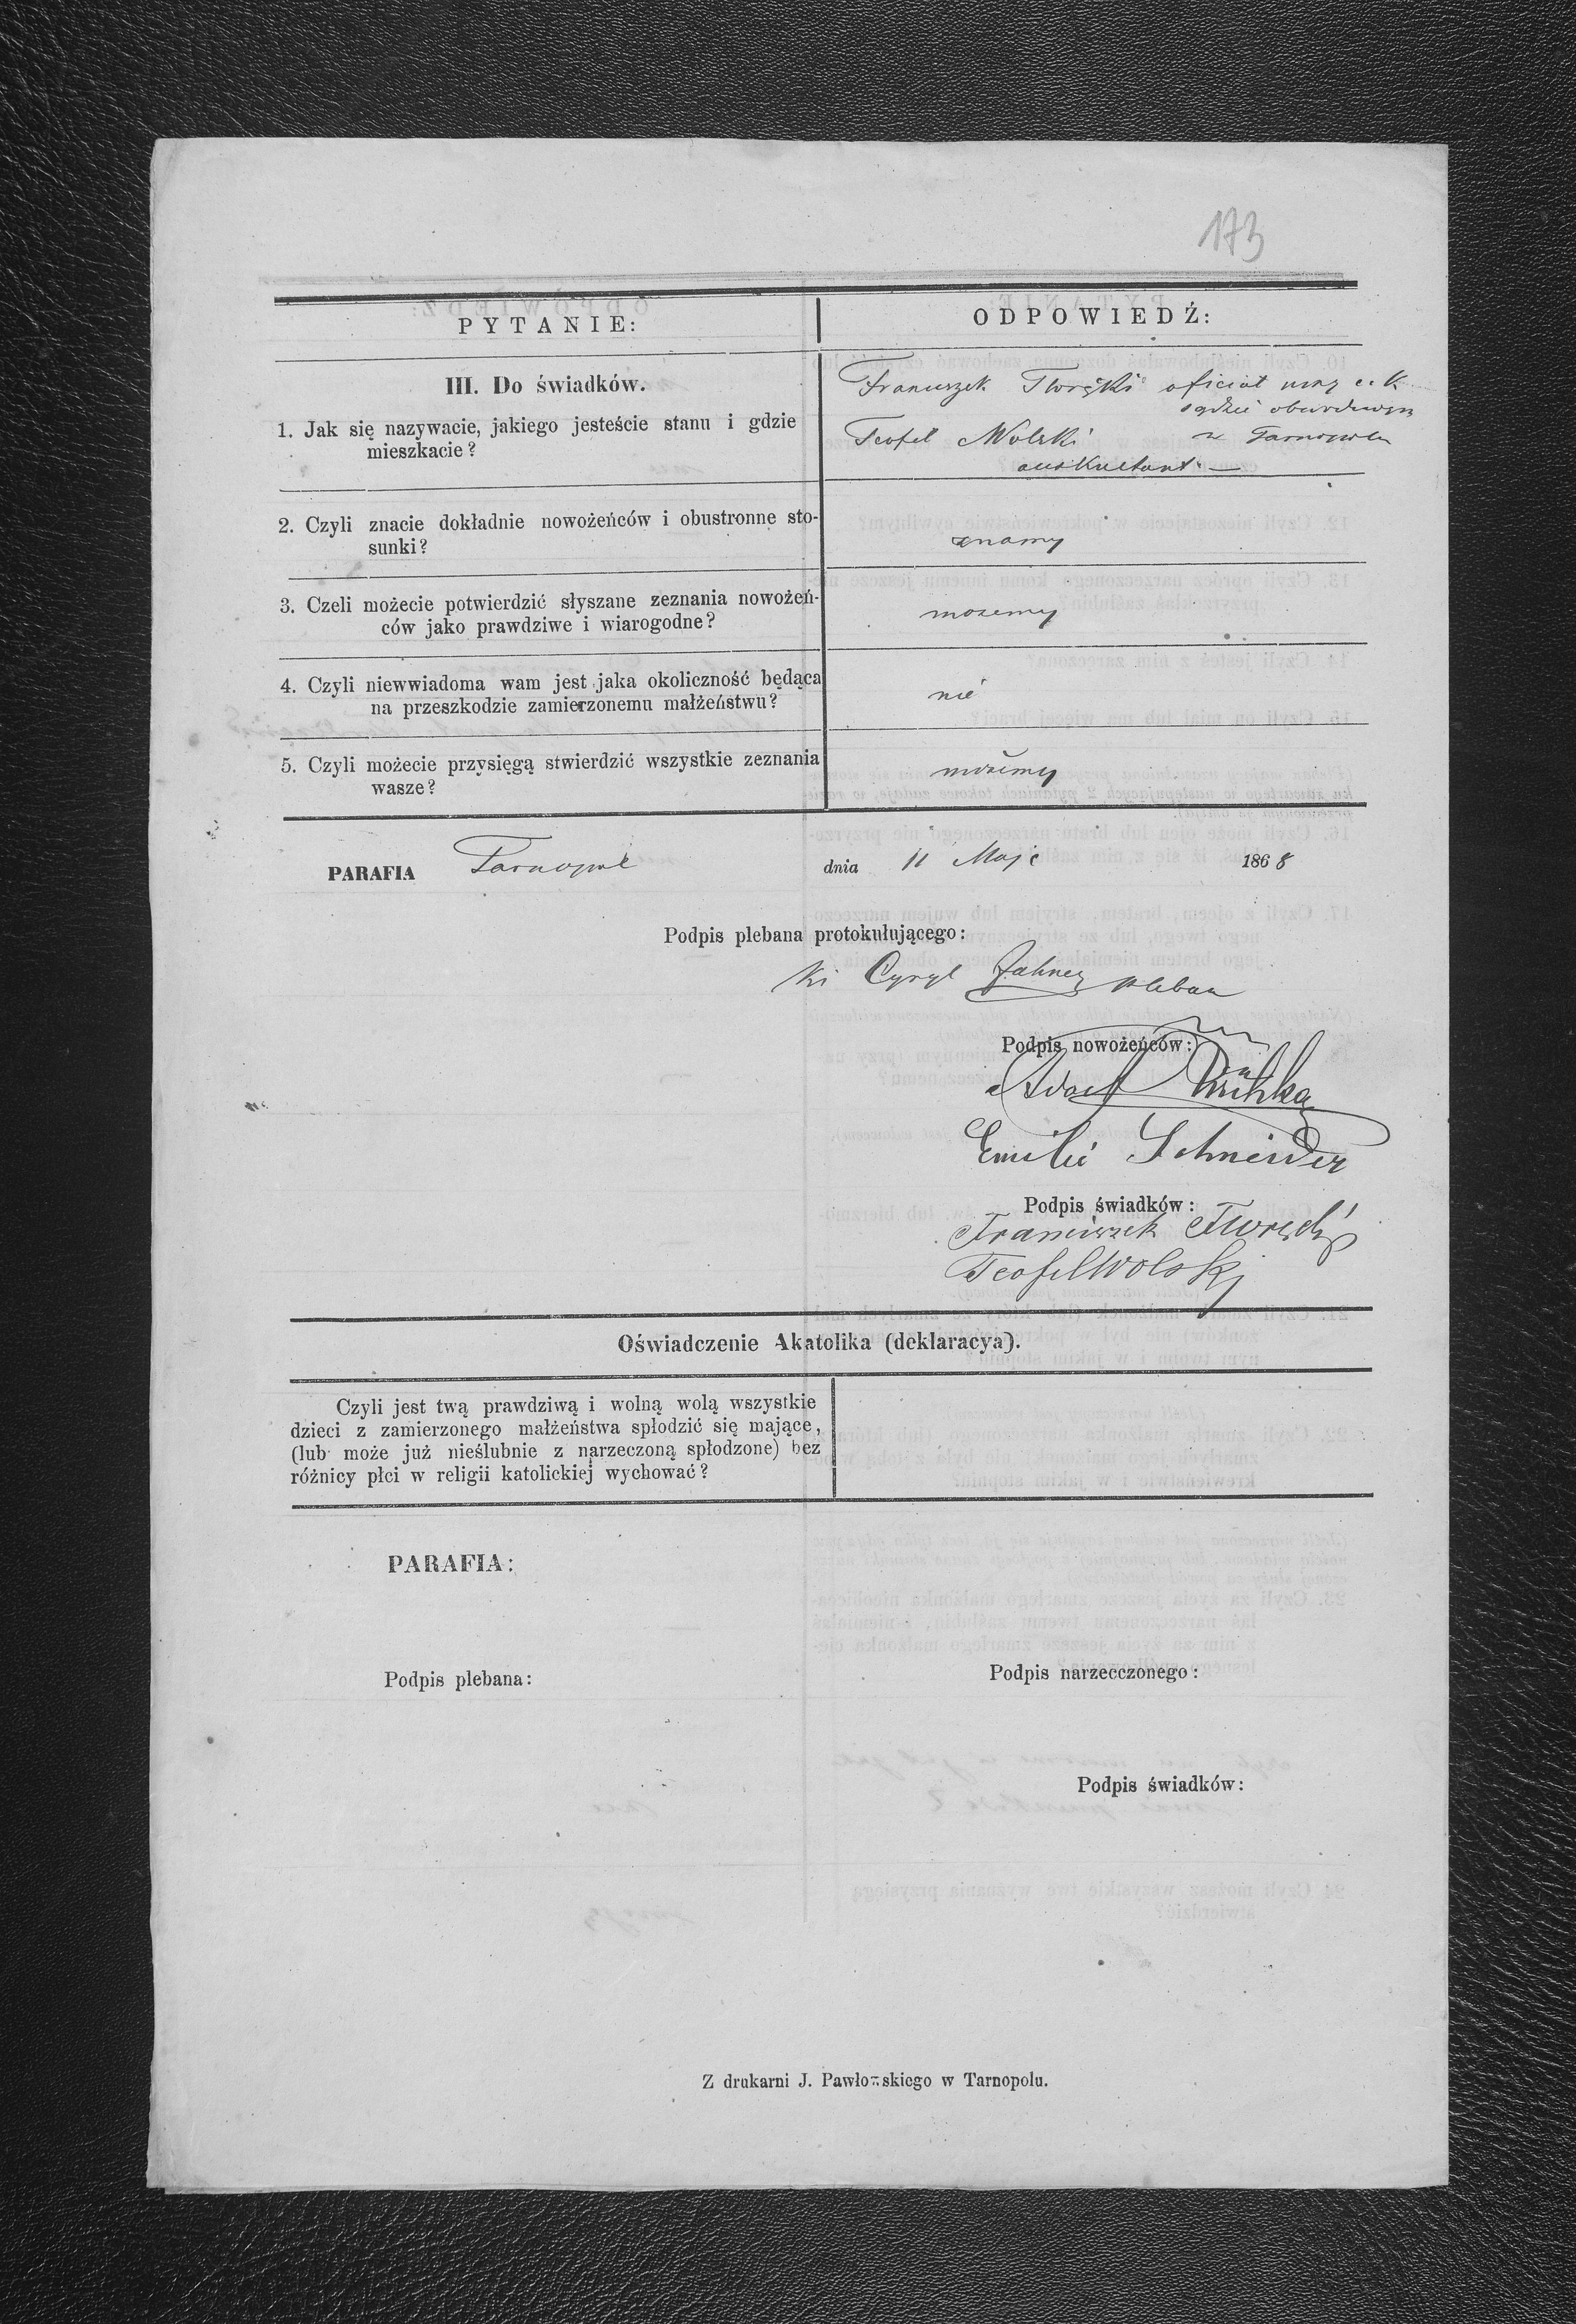 173
PYTANIE:
ODPOWIEDŹ:
III. Do świadków.
1. Jak się nazywacie, jakiego jesteście stanu i gdzie
mieszkacie?
Franciszek oficiał c. k.
sądzie obwodowym
Teofil Wolski w Tarnopolu
auskultant —
2. Czyli znacie dokładnie nowożeńców i obustronne sto-
sunki?
znamy
3. Czeli możecie potwierdzić słyszane zeznania nowożeń-
ców jako prawdziwe i wiarogodne?
możemy
4. Czyli niewwiadoma wam jest jaka okoliczność będąca
na przeszkodzie zamierzonemu małżeństwu?
nie
5. Czyli możecie przysięgą stwierdzić wszystkie zeznania
wasze?
możemy
PARAFIA Tarnopol dnia 11 Maja 1868
Podpis plebana protokułującego:
Cyryl pleban
Podpis nowożeńców:
Adolf
Emilie Schneider
Podpis świadków:
Franciszek
Teofil Wolski
Oświadczenie Akatolika (deklaracya).
Czyli jest twą prawdziwą i wolną wolą wszystkie
dzieci z zamierzonego małżeństwa spłodzić się mające,
(lub może już nieślubnie z narzeczoną spłodzone) bez
różnicy płci w religii katolickiej wychować?
PARAFIA:
Podpis plebana:
Podpis narzecczonego:
Podpis świadków:
Z drukarni J. Pawłowskiego w Tarnopolu.